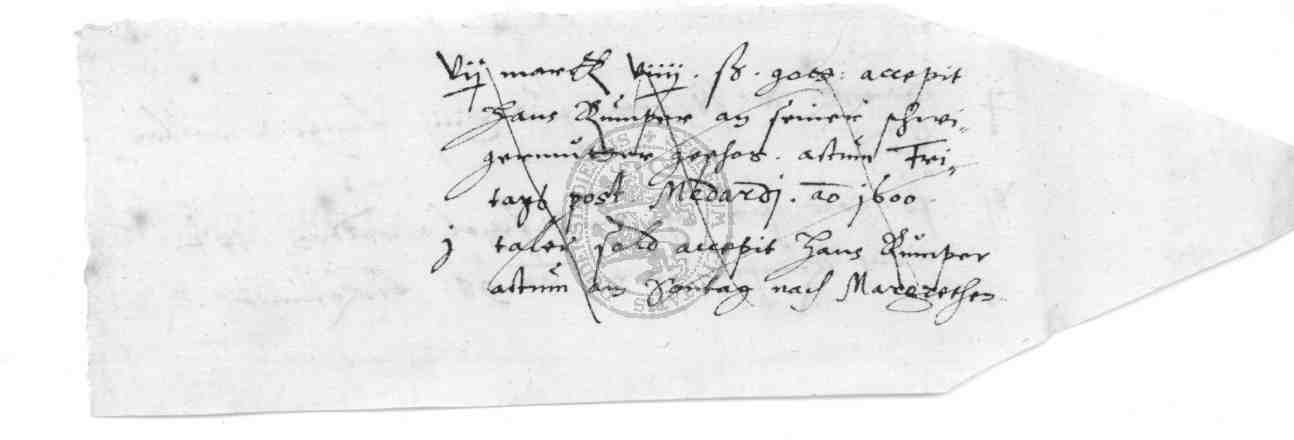 vij marck viiij . ß . gots : accepit
Hans Rümper an seiner schwi-
germutter . actum Fri-
tags post Medardj . ao 1600
j taler sold accepit Hans Rümper
actum am Sontag nach Margrethen